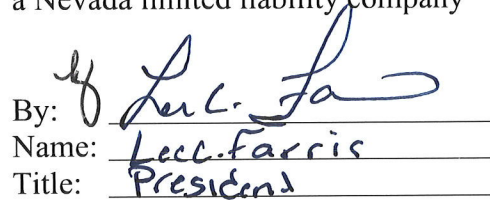 a Nevada limited liability company
By: Lee C. Fa
Name: Lee C. Farris
Title: President